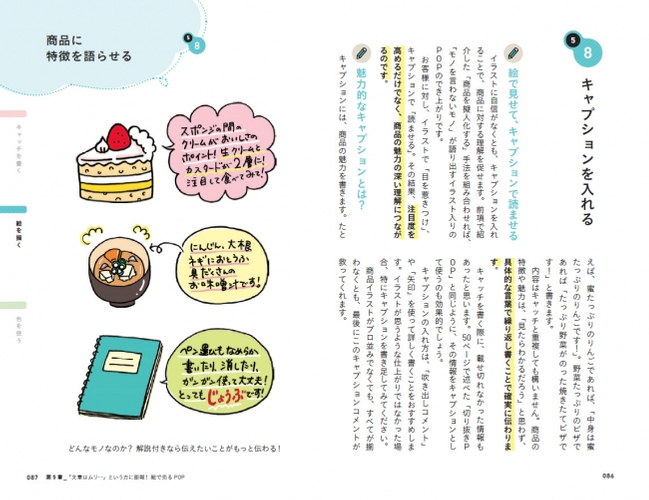 5
8
キャプションを入れる
絵で見せて、キャプションで読ませる
イラストに自信がなくとも、キャプションを入れ
ることで、商品に対する理解を促せます。前項で紹
介した「商品を擬人化する」手法を組み合わせれば、
「モノを言わないモノ」が語り出すイラスト入りの
POPのでき上がりです。
お客様に対し、イラストで「目を惹きつけ」、
キャプションで「読ませる」。その結果、注目度を
高めるだけでなく、商品の魅力の深い理解につなが
るのです。
魅力的なキャプションとは?
キャプションには、商品の魅力を書きます。たと
えば、蜜たっぷりのりんごであれば、「中身は蜜
たっぷりのりんごですー!」。野菜たっぷりのピザで
あれば「たっぷり野菜がのった焼きたてピザで
す!」と書きます。
内容はキャッチと重複しても構いません。商品の
特徴や魅力は、「見たらわかるだろう」と思わず、
具体的な言葉で繰り返し書くことで確実に伝わりま
す。
キャッチを書く際に、載せ切れなかった情報も
あったと思います。50ページで述べた「切り抜きP
OP」と同じように、その情報をキャプションとし
て使うのも効果的でしょう。
キャプションの入れ方は、「吹き出しコメント」
や「矢印」を使って詳しく書くことをおすすめしま
す。イラストが思うような仕上がりではなかった場
合、特にキャプションを書き足してみてください。
商品イラストがプロ並みでなくても、すべてが揃
わなくとも、最後にこのキャプションコメントが
救ってくれます。
086
5
8
商品に
特徴を語らせる
スポンジの間の
クリームがおいしさの
ポイント!生クリームと
カスタードが2層に!
注目して食べてみて!
にんじん、大根
ネギにおとうふ
具だくさんの
お味噌汁です!
ペン運びもなめらか
書いたり、消したり、
ガンガン使って大丈夫!
とってもじょうぶです!
どんなモノなのか? 解説付きなら伝えたいことがもっと伝わる!
キャッチを書く
絵を描く
色を使う
087 第5章_「文章はムリー」という方に朗報!絵で売るPOP